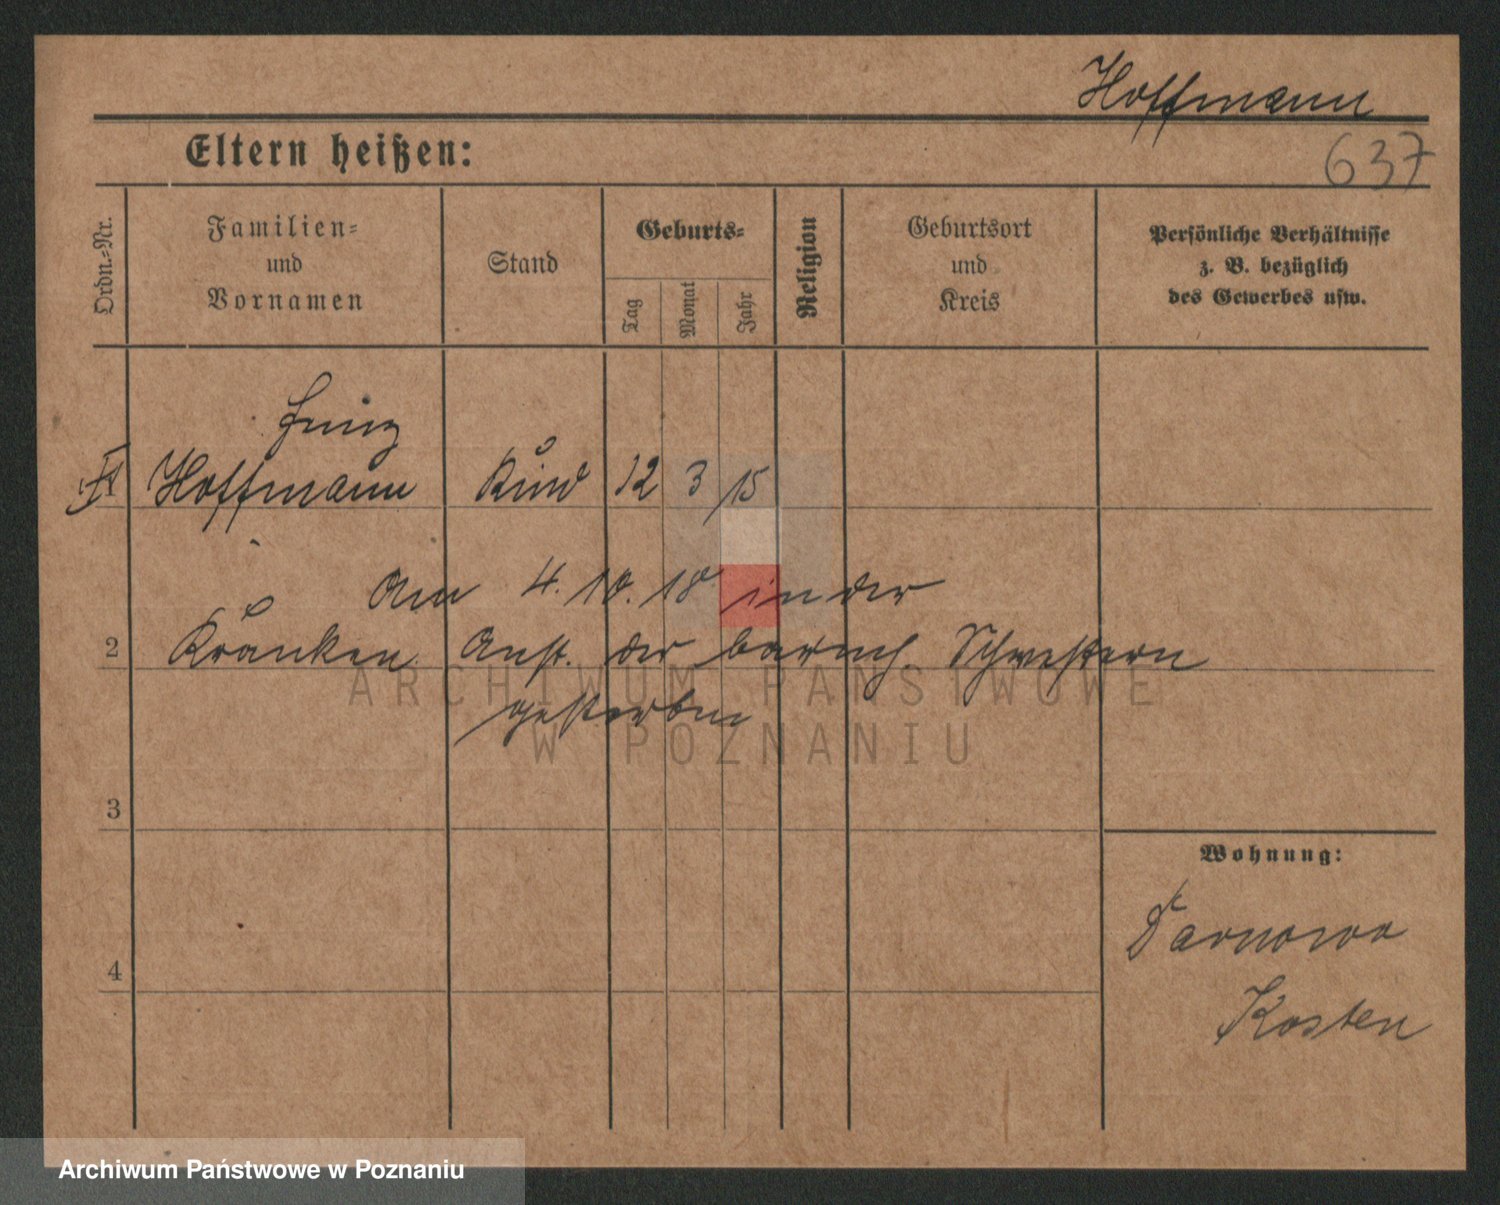 Hoffmann
637
Eltern heißen:
Ordn.=Nr.
Familien=
und
Vornamen
Stand
Geburts=
Tag
Monat
Jahr
Religion
Geburtsort
und
Kreis
Persönliche Verhältnisse
z. B. bezüglich
des Gewerbes usw.
Heinz
1 Hoffmann Kind 12 3 15
Am 4. 10. 18 in der
2 Kranken Anst. der barmh. Schwestern
gestorben
ARCHIWUM PAŃSTWOWE
W POZNANIU
3
Wohnung:
Darnowo
4
Kosten
Archiwum Państwowe w Poznaniu